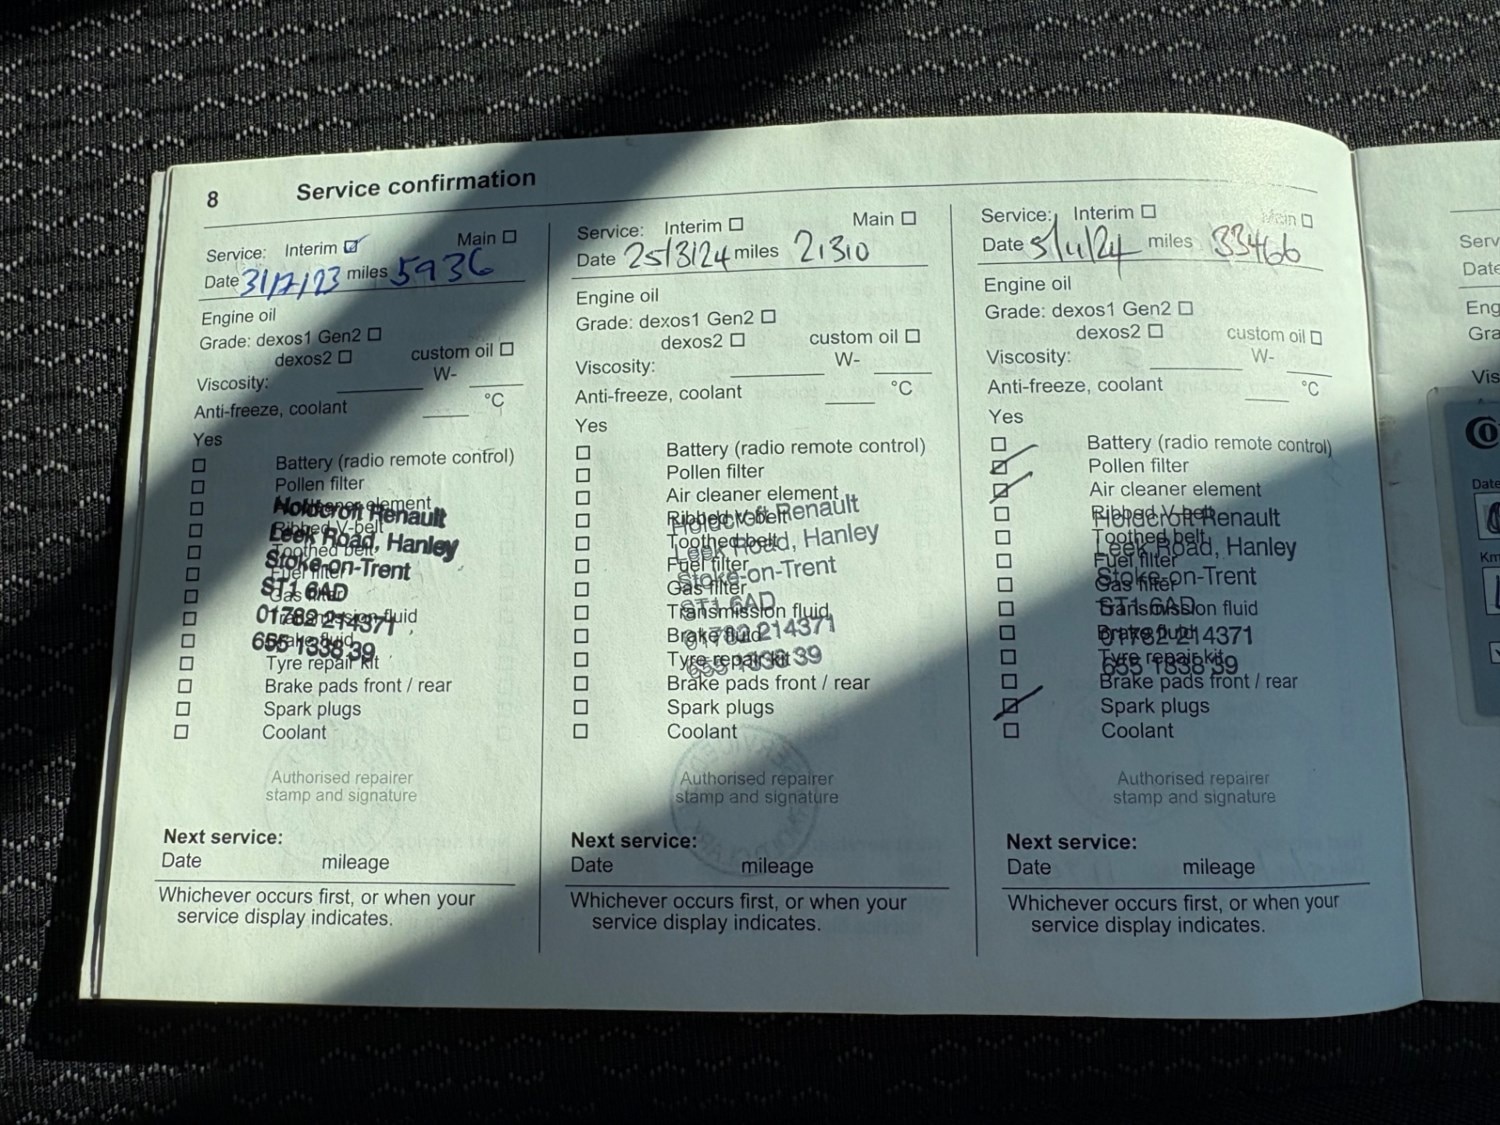 8 Service confirmation
Service: Interim Main
Date 31/7/23 miles 5936
Engine oil
Grade: dexos1 Gen2
dexos2 custom oil
Viscosity: W-
Anti-freeze, coolant °C
Yes
Battery (radio remote control)
Pollen filter
element
Holdcroft Renault
Ribbed V-belt
Leek Road, Hanley
Toothed belt
Stoke-on-Trent
Fuel filter
Gas filter
ST1 6AD
fluid
01782 214371
Brake fluid
655 1338 39
Tyre repair kit
Brake pads front / rear
Spark plugs
Coolant
Authorised repairer
stamp and signature
Next service:
Date mileage
Whichever occurs first, or when your
service display indicates.
Service: Interim Main
Date 25/3/24 miles 21310
Engine oil
Grade: dexos1 Gen2
dexos2 custom oil
Viscosity: W-
Anti-freeze, coolant °C
Yes
Battery (radio remote control)
Pollen filter
Air cleaner element
Ribbed V-belt
Holdcroft Renault
Toothed belt
Leek Road, Hanley
Fuel filter
Stoke-on-Trent
Gas filter
ST1 6AD
Transmission fluid
Brake fluid
01782 214371
Tyre repair kit
655 1338 39
Brake pads front / rear
Spark plugs
Coolant
Authorised repairer
stamp and signature
Next service:
Date mileage
Whichever occurs first, or when your
service display indicates.
Service: Interim Main
Date 5/11/24 miles 33466
Engine oil
Grade: dexos1 Gen2
dexos2 custom oil
Viscosity: W-
Anti-freeze, coolant °C
Yes
Battery (radio remote control)
Pollen filter
Air cleaner element
Ribbed V-belt
Holdcroft Renault
Toothed belt
Leek Road, Hanley
Fuel filter
Stoke-on-Trent
Gas filter
ST1 6AD
Transmission fluid
Brake fluid
01782 214371
Tyre repair kit
655 1338 39
Brake pads front / rear
Spark plugs
Coolant
Authorised repairer
stamp and signature
Next service:
Date mileage
Whichever occurs first, or when your
service display indicates.
Date